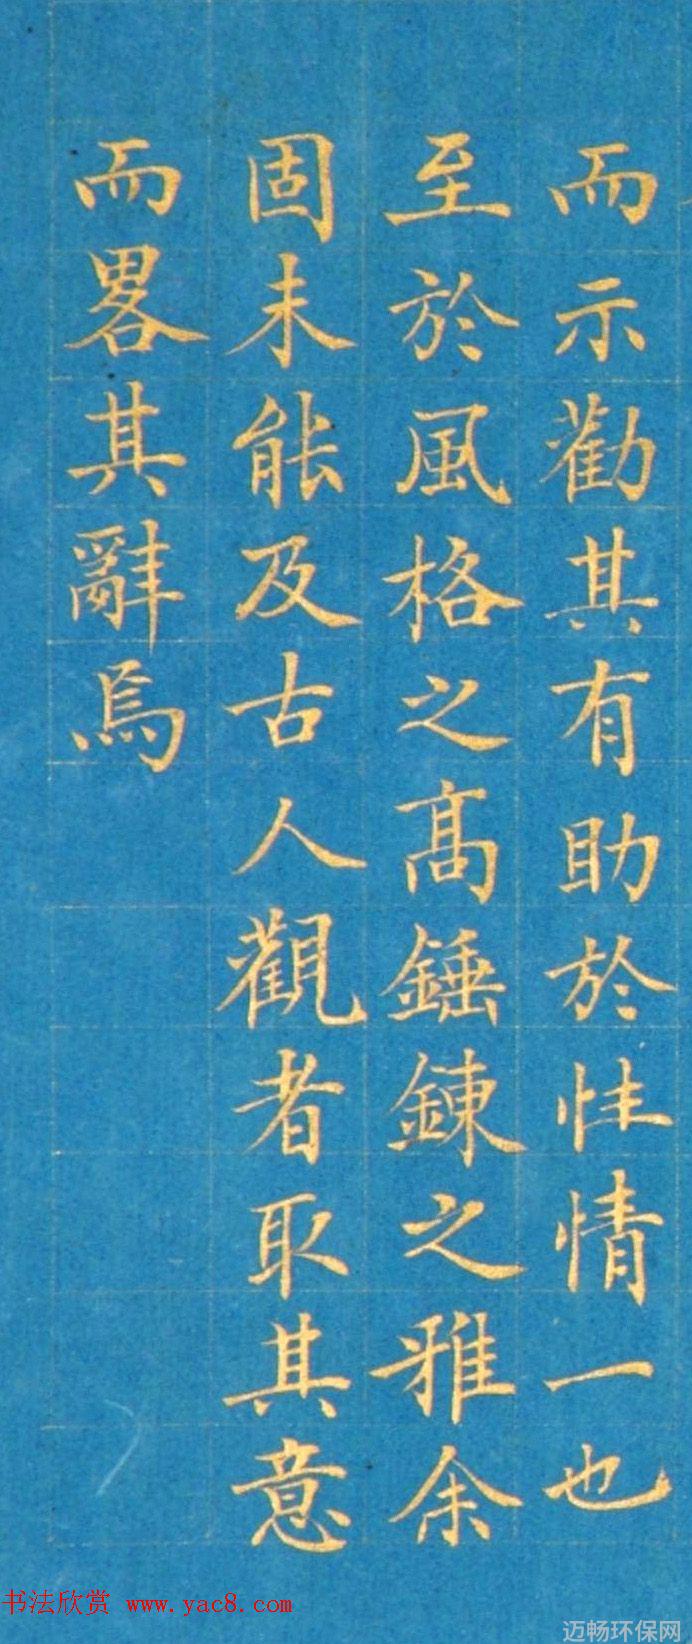 而示勸其有助於性情一也
至於風格之髙錘鍊之雅余
固未能及古人觀者取其意
而畧其辭焉
书法欣赏 www.yac8.com
迈畅环保网